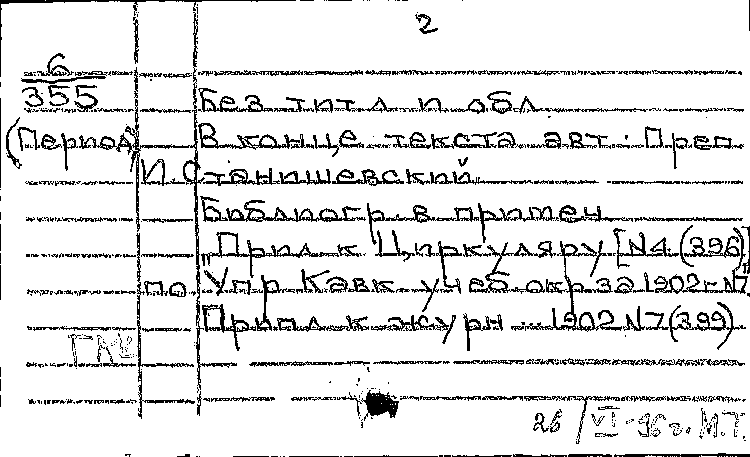 2
6
355
Без тит л и обл
(Период) В конце текста авт. Преп
И. Станишевский
Библиогр. в примеч
"Прил к Циркуляру [N4 (396)]
по Упр Кавк. учеб. окр за 1902г. N7"
Прил к журн... 1902 N7 (399)
26/VI-96г. М.Т.